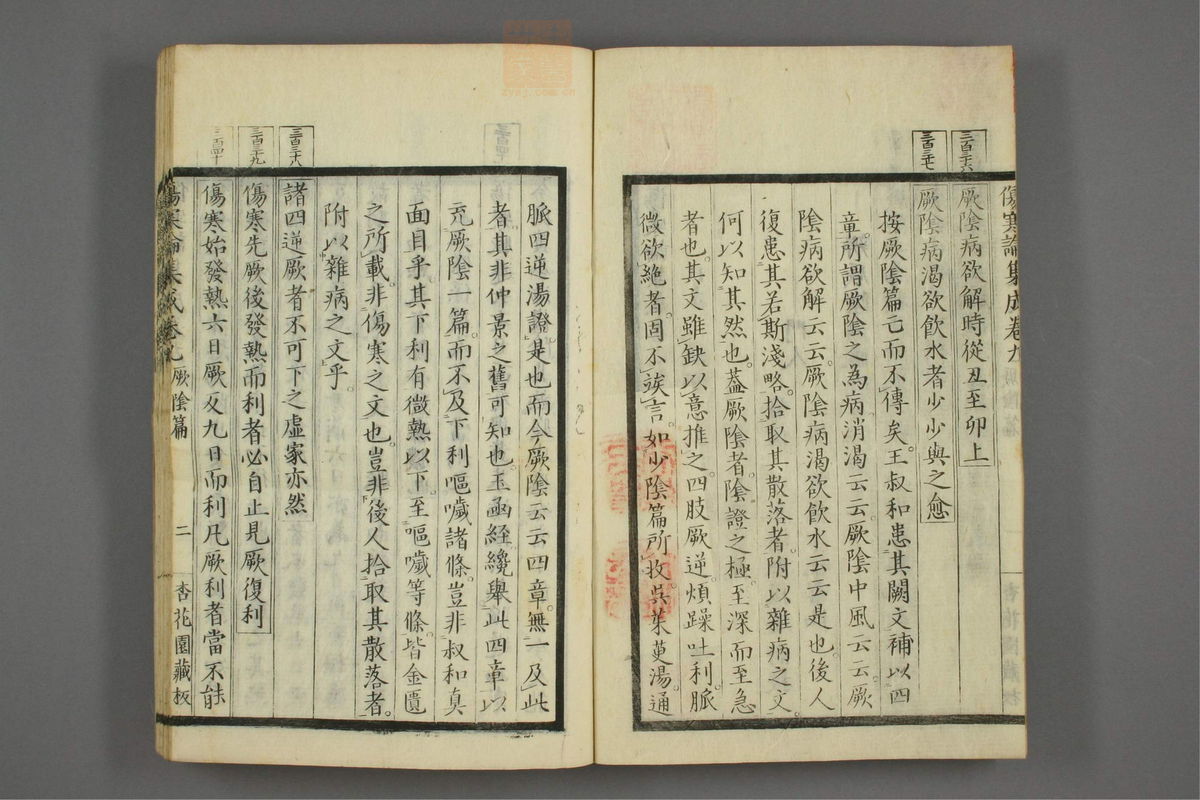 傷寒論集成卷九
三百三十六
厥陰病欲解時從丑至卯上
三百三十七
厥陰病渴欲飲水者少少與之愈
按厥陰篇亡而不傳矣。王叔和患其闕文補以四
章。所謂厥陰之為病消渴云云。厥陰中風云云。厥
陰病欲解云云。厥陰病渴欲飲水云云是也。後人
復患其若斯淺略。拾取其散落者。附以雜病之文。
何以知其然也。蓋厥陰者。陰證之極。至深而至急
者也。其文雖缺以意推之。四肢厥逆。煩躁吐利。脈
微欲絕者。固不竢言。如少陰篇所收吳茱萸湯。通
脈四逆湯證。是也而今厥陰云云四章。無一及此
者。其非仲景之舊可知也。玉函經纔舉此四章以
充厥陰一篇。而不及下利嘔噦諸條。豈非叔和真
面目乎。其下利有微熱以下。至嘔噦等條。皆金匱
之所載。非傷寒之文也。豈非後人拾取其散落者。
附以雜病之文乎。
三百三十八
諸四逆厥者不可下之虛家亦然
三百三十九
傷寒先厥後發熱而利者必自止見厥復利
三百四十
傷寒始發熱六日厥反九日而利凡厥利者當不能
傷寒論集成卷九 厥陰篇 二 杏花園藏板
zyyj.com.cn